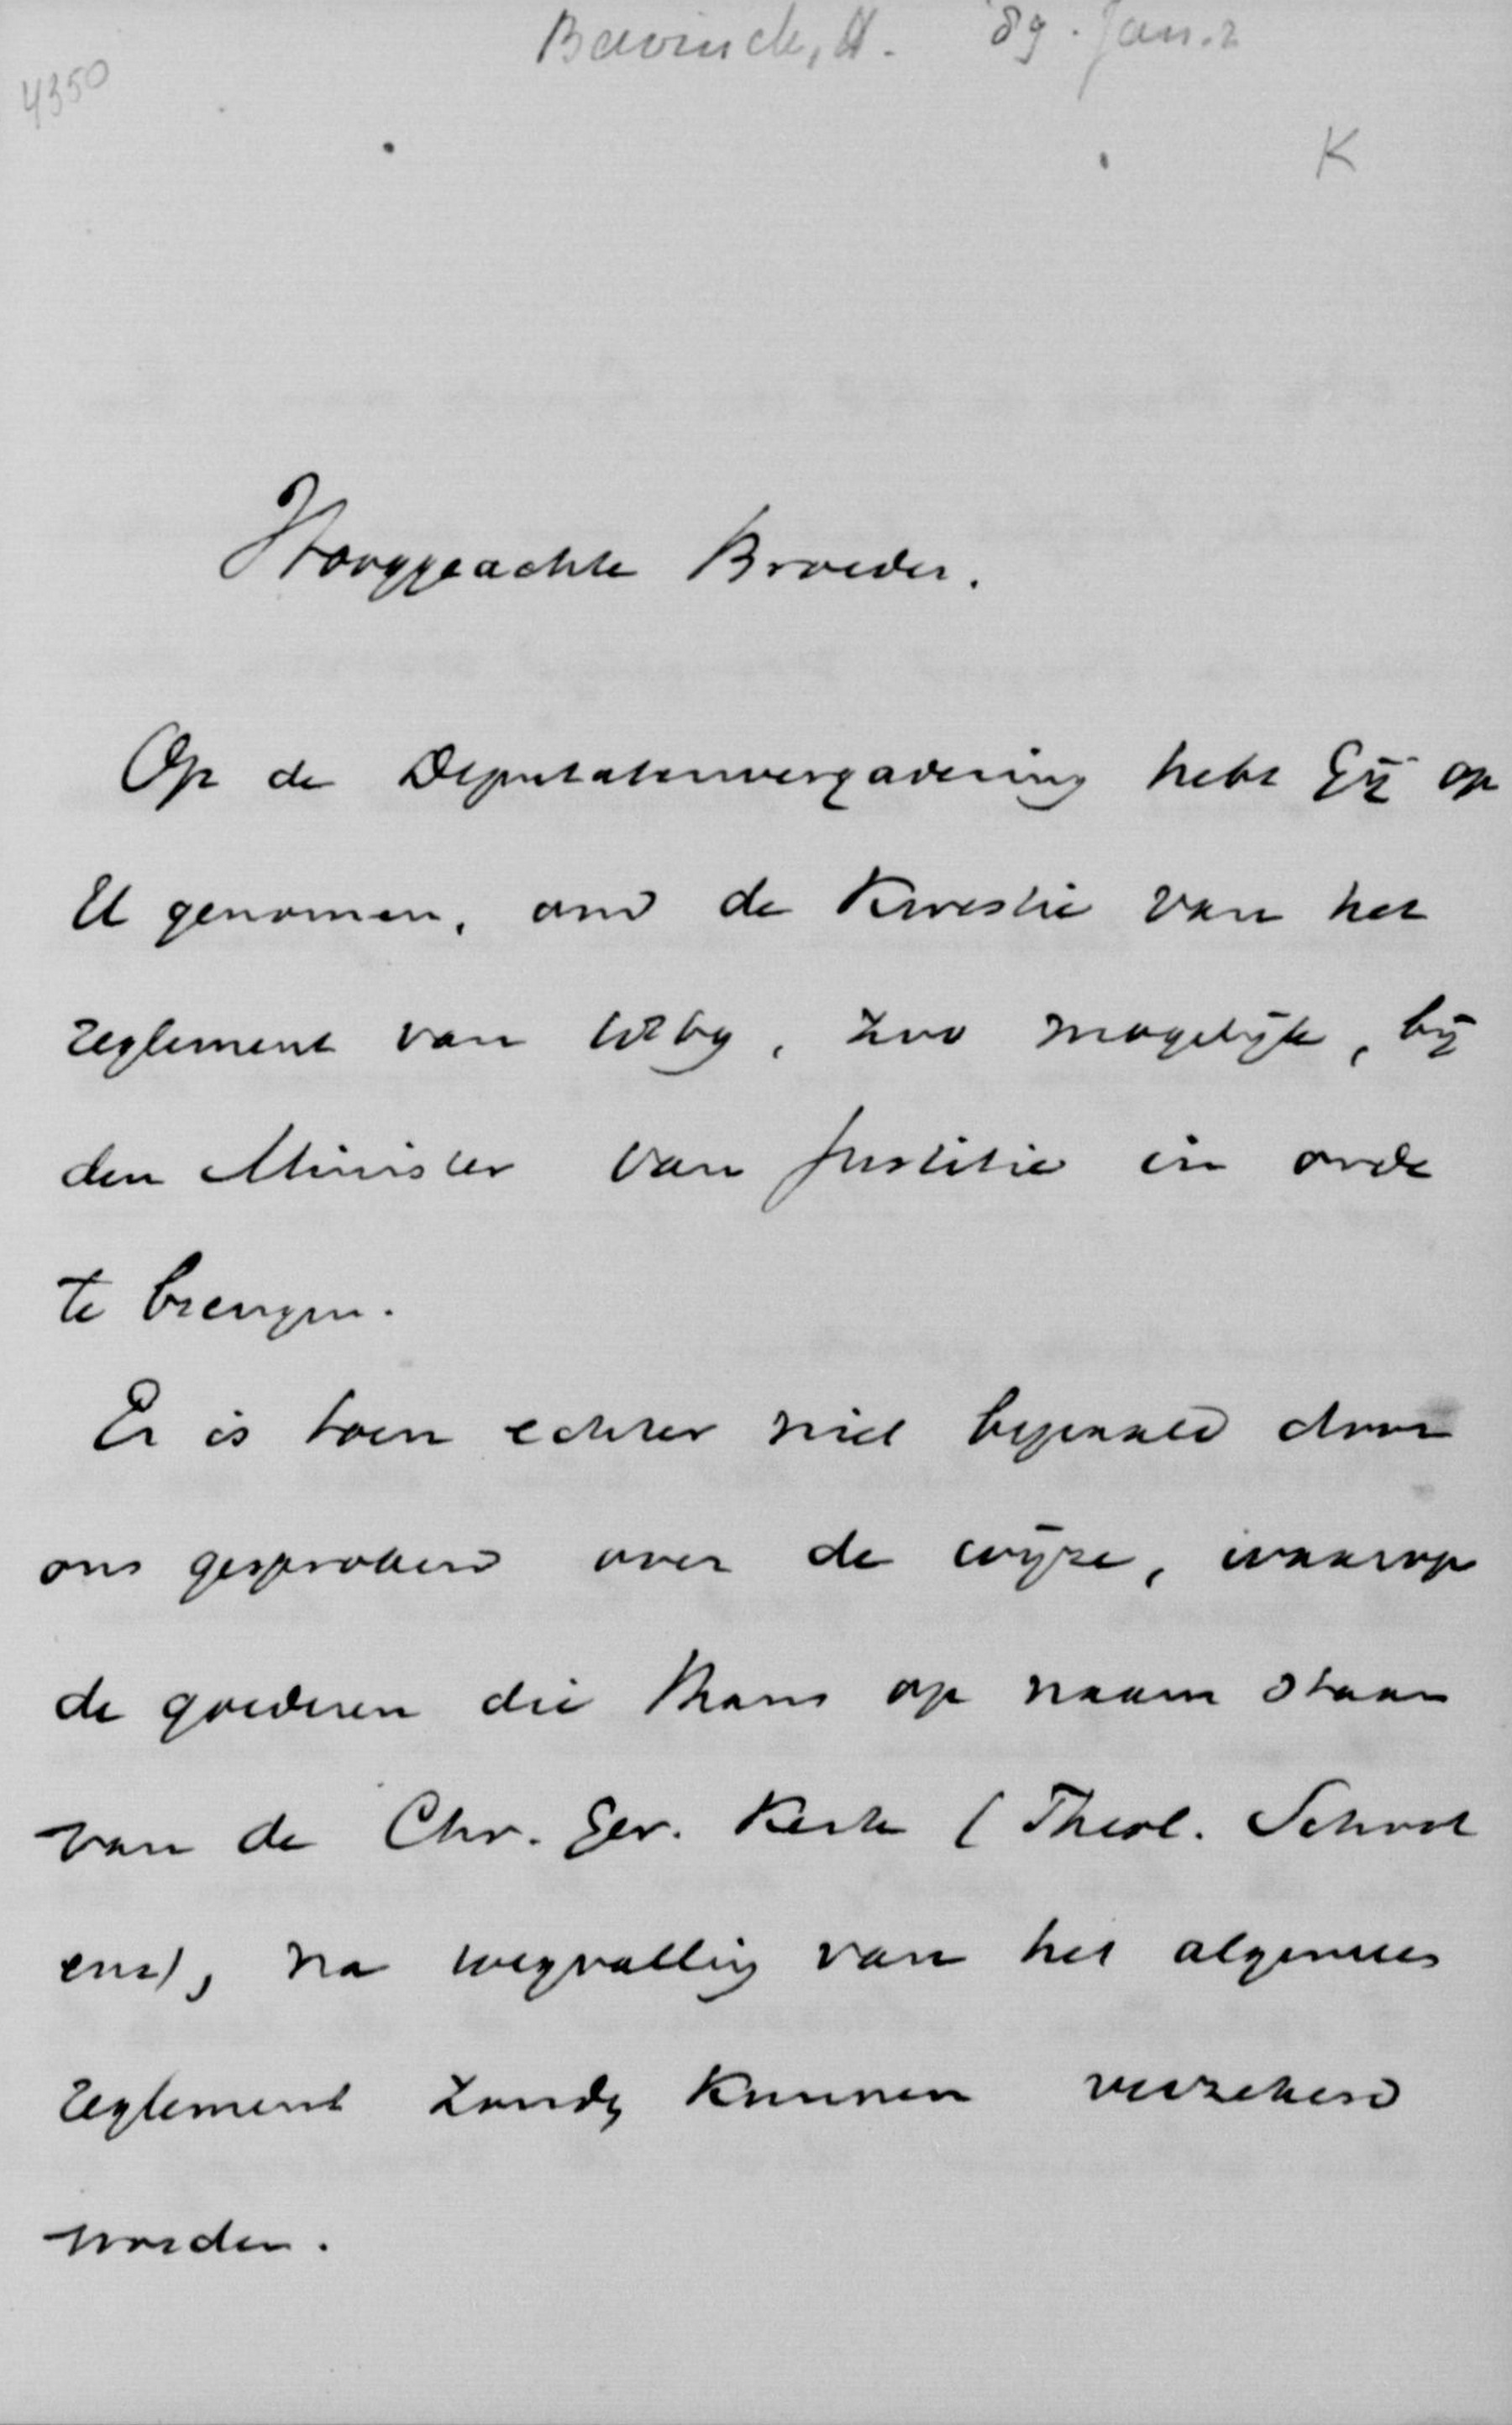 Bavinck, H. '89. Jan. 2
4350
K
Hooggeachte Broeder.
Op de Deputatenvergadering hebt Gij op
U genomen, om de kwestie van het
reglement van 1869, zoo mogelijk, bij
den Minister van Justitie in orde
te brengen.
Er is toen echter niet bepaald door
ons gesproken over de wijze, waarop
de goederen die thans op naam staan
van de Chr. Ger. Kerk (Theol. School
enz), na wegvalling van het algemeen
reglement zouden kunnen verzekerd
worden.